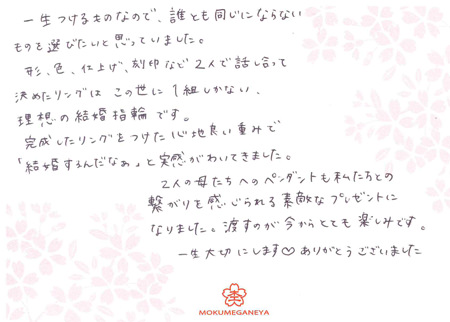 一生つけるものなので、誰とも同じにならない
ものを選びたいと思っていました。
形、色、仕上げ、刻印など2人で話し合って
決めたリングは この世に 1組しかない、
理想の結婚指輪です。
完成したリングをつけた心地良い重みで
「結婚するんだなぁ」と実感がわいてきました。
2人の母たちへのペンダントも私たちとの
繋がりを感じられる素敵なプレゼントに
なりました。渡すのが今からとても楽しみです。
一生大切にします♡ ありがとうございました
MOKUMEGANEYA